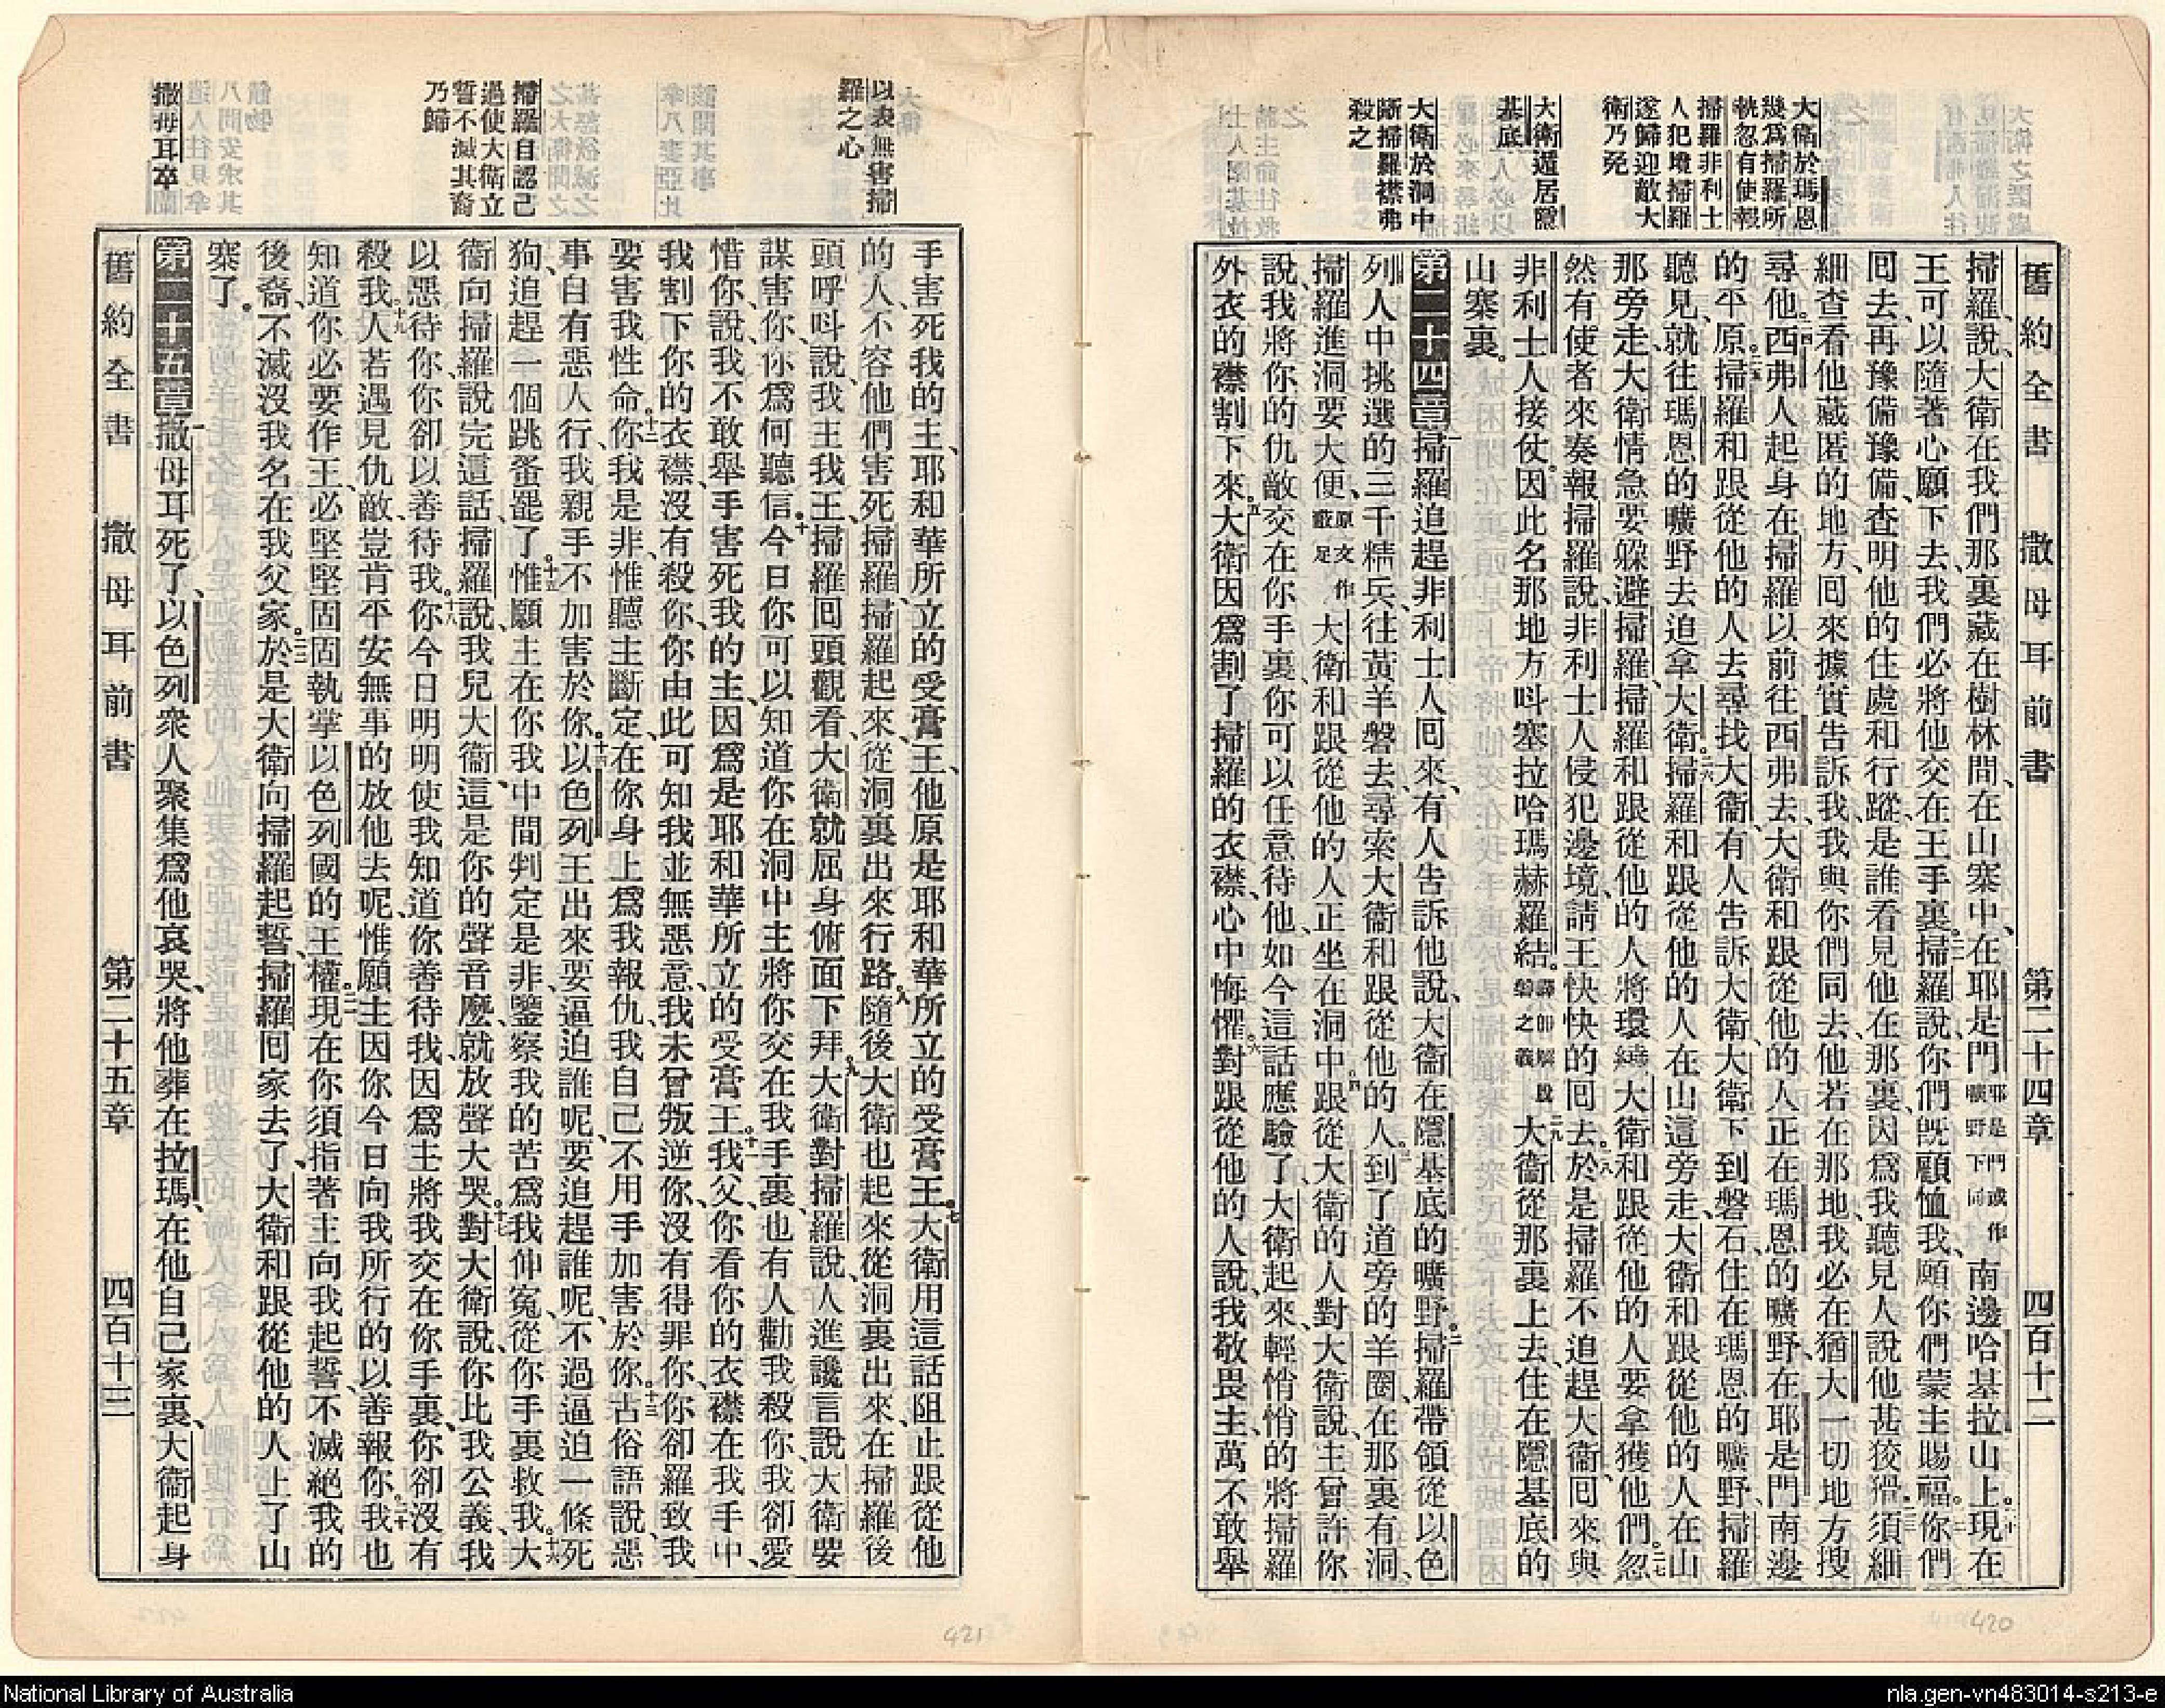 大衛於瑪恩
幾爲掃羅所
執忽有使報
掃羅非利士
人犯境掃羅
遂歸迎敵大
衛乃免
大衛遁居隱
基底
大衛於洞中
斷掃羅襟弗
殺之
舊約全書 撒母耳前書 第二十四章 四百十二
掃羅說、大衛在我們那裏藏在樹林間、在山寨中、在耶是門耶是門或作曠野下同南邊哈基拉山上。二十現在
王可以隨著心願下去、我們必將他交在王手裏。二一掃羅說、你們旣顧恤我、願你們蒙主賜福。二二你們
回去、再豫備豫備、查明他的住處和行蹤、是誰看見他在那裏、因爲我聽見人說他甚狡猾。二三須細
細查看他藏匿的地方、回來據實告訴我、我與你們同去、他若在那地、我必在猶大一切地方搜
尋他。二四西弗人起身在掃羅以前往西弗去、大衛和跟從他的人正在瑪恩的曠野、在耶是門南邊
的平原。二五掃羅和跟從他的人去尋找大衛、有人告訴大衛、大衛下到磐石、住在瑪恩的曠野、掃羅
聽見、就往瑪恩的曠野去追拿大衛。二六掃羅和跟從他的人在山這旁走、大衛和跟從他的人在山
那旁走、大衛情急要躱避掃羅、掃羅和跟從他的人將環繞大衛和跟從他的人要拿獲他們。二七忽
然有使者來奏報掃羅說、非利士人侵犯邊境、請王快快的回去。二八於是掃羅不追趕大衛、回來與
非利士人接仗、因此名那地方叫塞拉哈瑪赫羅結。譯卽解脫磐之義二九大衛從那裏上去、住在隱基底的
山寨裏。
第二十四章一掃羅追趕非利士人回來、有人告訴他說、大衛在隱基底的曠野。二掃羅帶領從以色
列人中挑選的三千精兵、往黃羊磐去、尋索大衛和跟從他的人。三到了道旁的羊圈、在那裏有洞、
掃羅進洞要大便、原文作蔽足大衛和跟從他的人正坐在洞中。四跟從大衛的人對大衛說、主曾許你
說、我將你的仇敵交在你手裏、你可以任意待他、如今這話應驗了、大衛起來、輕悄悄的將掃羅
外衣的襟割下來。五大衛因爲割了掃羅的衣襟、心中悔懼。六對跟從他的人說、我敬畏主、萬不敢舉
以表無害掃
羅之心
掃羅自認己
過使大衛立
誓不滅其裔
乃歸
撒母耳卒
手害死我的主、耶和華所立的受膏王、他原是耶和華所立的受膏王。七大衛用這話阻止跟從他
的人、不容他們害死掃羅、掃羅起來、從洞裏出來行路。八隨後大衛也起來從洞裏出來、在掃羅後
頭呼叫說、我主我王、掃羅回頭觀看、大衛就屈身俯面下拜。九大衛對掃羅說、人進讒言說、大衛要
謀害你、你爲何聽信。十今日你可以知道你在洞中、主將你交在我手裏、也有人勸我殺你、我卻愛
惜你、說、我不敢舉手害死我的主、因爲是耶和華所立的受膏王。十一我父、你看你的衣襟在我手中、
我割下你的衣襟、沒有殺你、你由此可知我並無惡意、我未曾叛逆你、沒有得罪你、你卻羅致我、
要害我性命。十二你我是非、惟聽主斷定、在你身上爲我報仇、我自己不用手加害於你。十三古俗語說、惡
事自有惡人行、我親手不加害於你。十四以色列王出來要逼迫誰呢、要追趕誰呢、不過逼迫一條死
狗、追趕一個跳蚤罷了。十五惟願主在你我中間判定是非、鑒察我的苦、爲我伸冤、從你手裏救我。十六大
衛向掃羅說完這話、掃羅說、我兒大衛、這是你的聲音麽、就放聲大哭。十七對大衛說、你比我公義、我
以惡待你、你卻以善待我。十八你今日明明使我知道你善待我、因爲主將我交在你手裏、你卻沒有
殺我。十九人若遇見仇敵、豈肯平安無事的放他去呢、惟願主因你今日向我所行的以善報你。二十我也
知道你必要作王、必堅堅固固執掌以色列國的王權。二一現在你須指著主向我起誓、不滅絕我的
後裔、不滅沒我名在我父家。二二於是大衛向掃羅起誓、掃羅回家去了、大衛和跟從他的人上了山
寨了。
第二十五章一撒母耳死了、以色列衆人聚集爲他哀哭、將他葬在拉瑪、在他自己家裏、大衛起身
舊約全書 撒母耳前書 第二十五章 四百十三
421
420
National Library of Australia
nla.gen-vn483014-s213-e